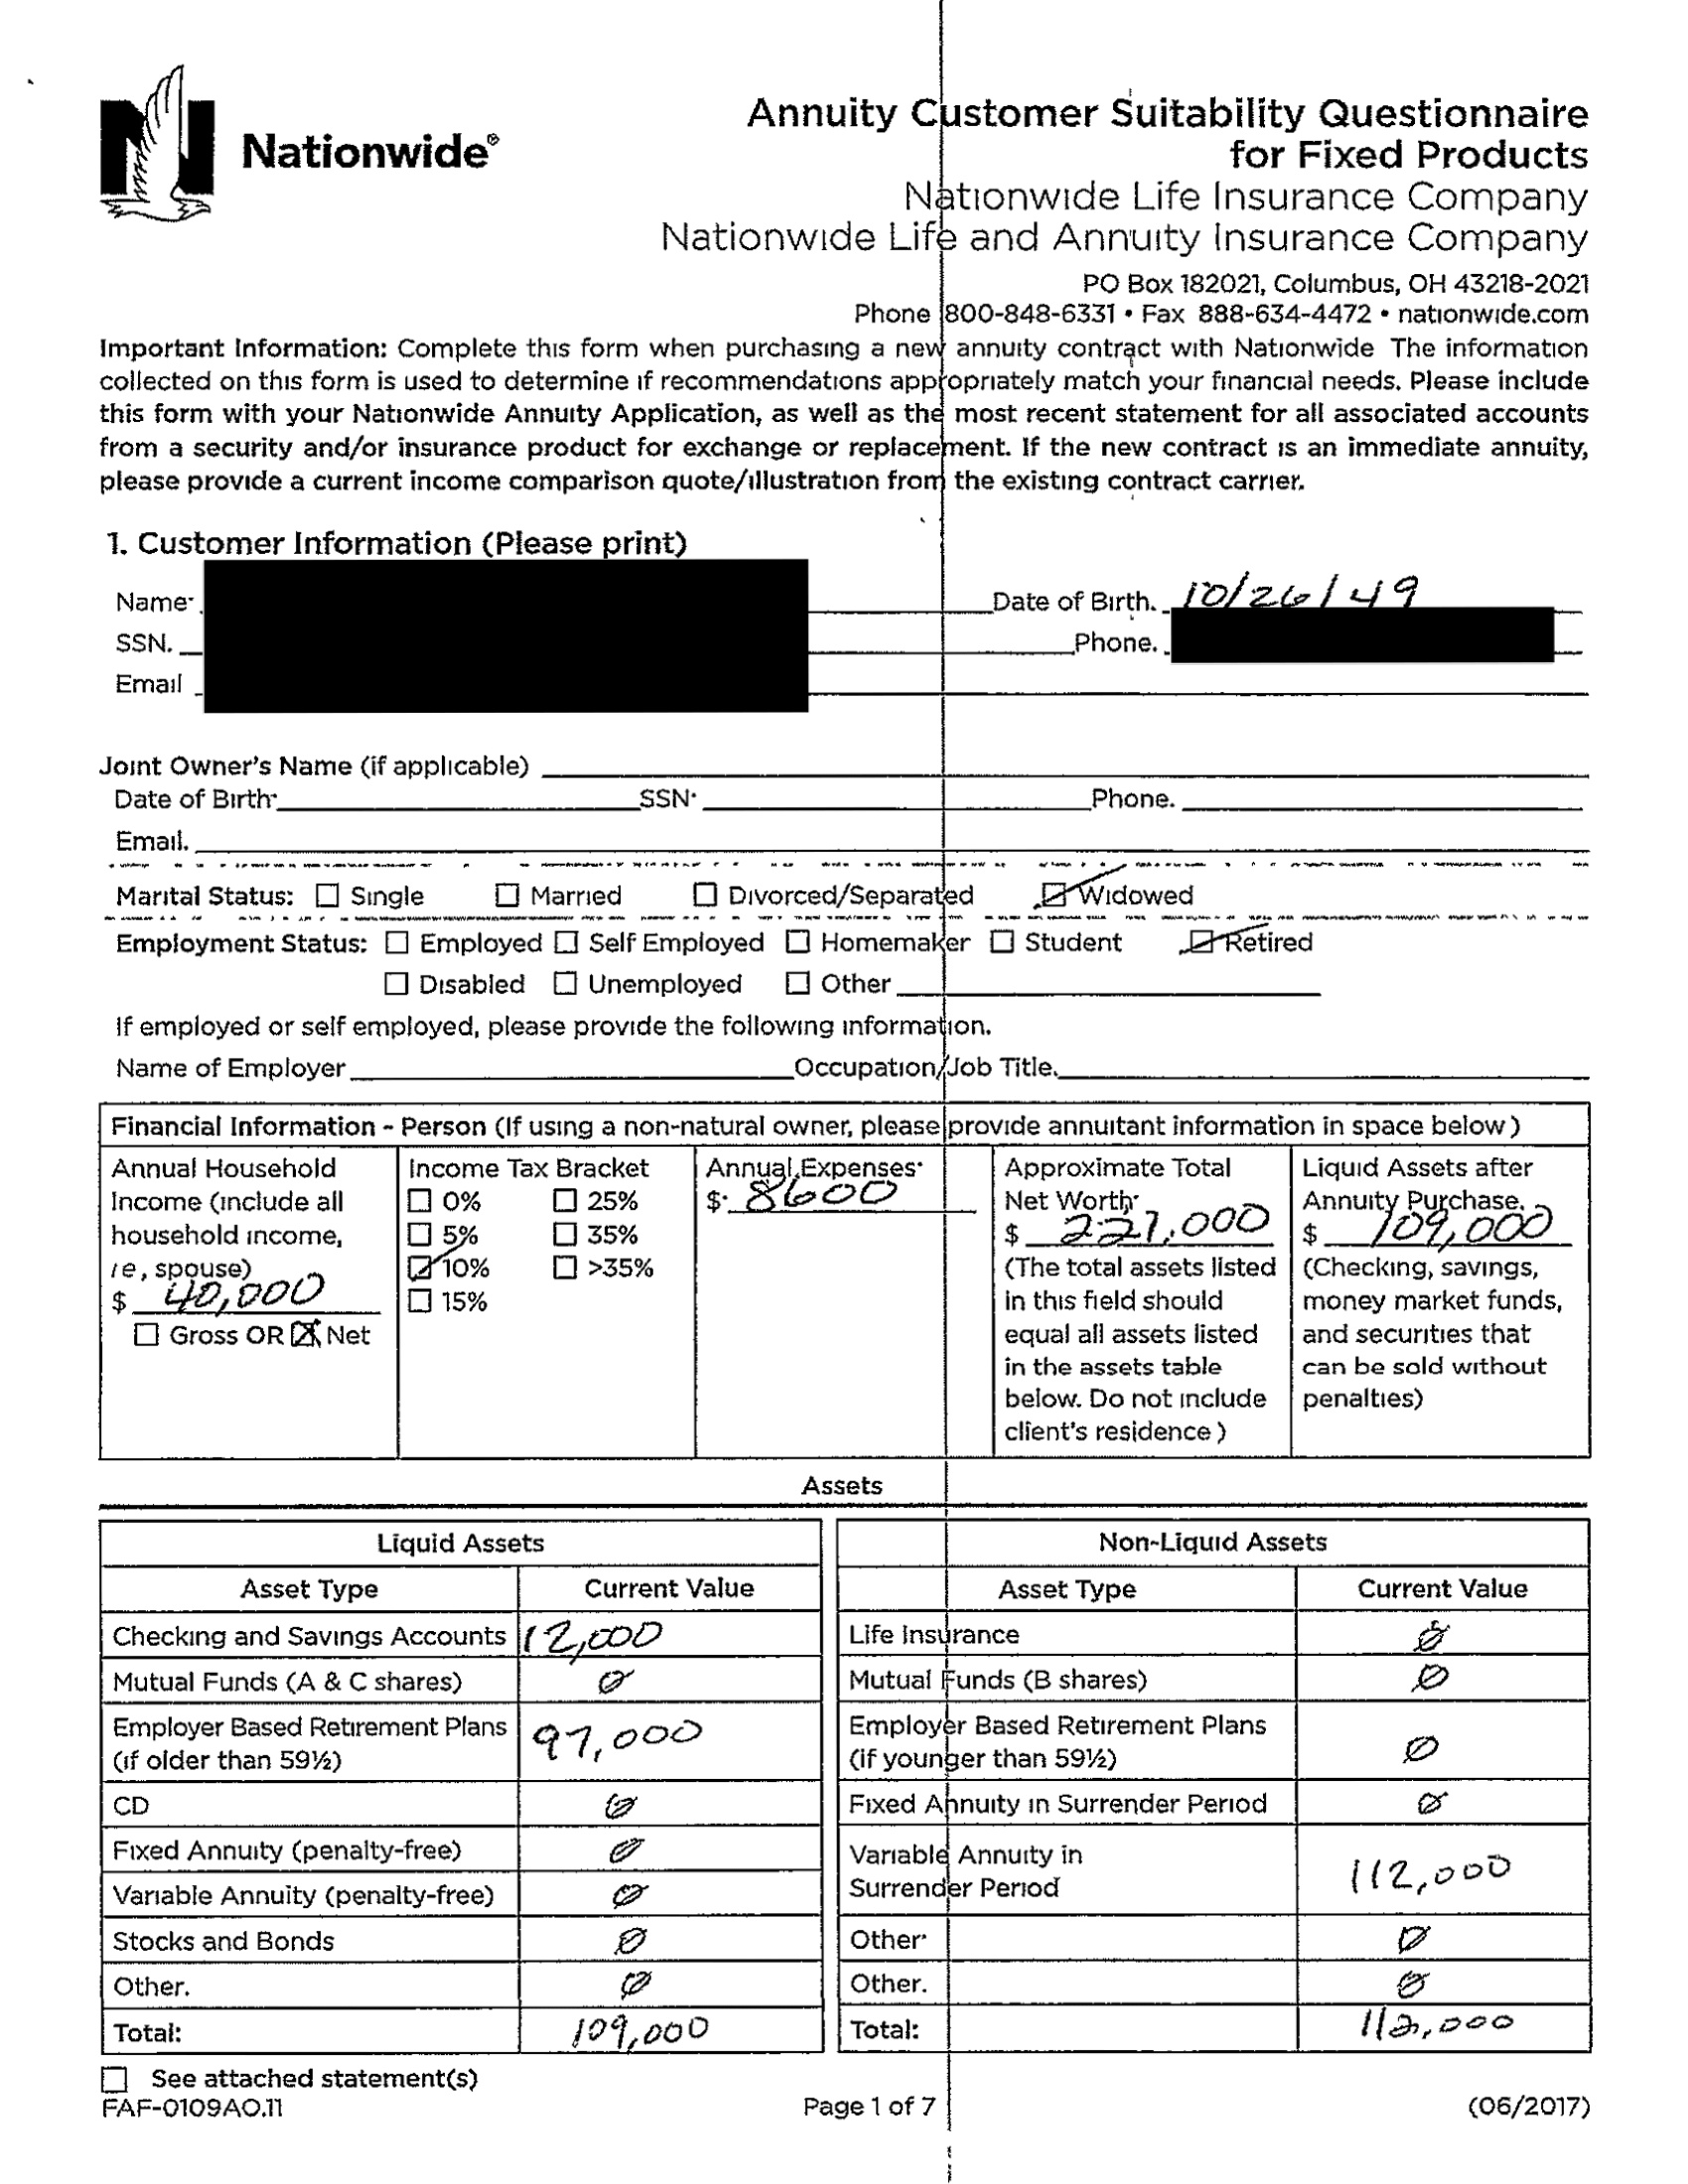 Nationwide®
Annuity Customer Suitability Questionnaire
for Fixed Products
Nationwide Life Insurance Company
Nationwide Life and Annuity Insurance Company
PO Box 182021, Columbus, OH 43218-2021
Phone 800-848-6331 • Fax 888-634-4472 • nationwide.com
Important Information: Complete this form when purchasing a new annuity contract with Nationwide The information
collected on this form is used to determine if recommendations appropriately match your financial needs. Please include
this form with your Nationwide Annuity Application, as well as the most recent statement for all associated accounts
from a security and/or insurance product for exchange or replacement. If the new contract is an immediate annuity,
please provide a current income comparison quote/illustration from the existing contract carrier.
1. Customer Information (Please print)
Name Date of Birth. 10/26/49
SSN. Phone.
Email
Joint Owner's Name (if applicable)
Date of Birth SSN Phone.
Email.
Marital Status: ☐ Single ☐ Married ☐ Divorced/Separated ☑ Widowed
Employment Status: ☐ Employed ☐ Self Employed ☐ Homemaker ☐ Student ☑ Retired
☐ Disabled ☐ Unemployed ☐ Other
If employed or self employed, please provide the following information.
Name of Employer Occupation/Job Title.
Financial Information - Person (If using a non-natural owner, please provide annuitant information in space below)
Annual Household
Income (include all
household income,
ie, spouse)
$ 40,000
☐ Gross OR ☒ Net
Income Tax Bracket
☐ 0% ☐ 25%
☐ 5% ☐ 35%
☑ 10% ☐ >35%
☐ 15%
Annual Expenses
$ 8600
Approximate Total
Net Worth
$ 221,000
(The total assets listed
in this field should
equal all assets listed
in the assets table
below. Do not include
client's residence)
Liquid Assets after
Annuity Purchase.
$ 109,000
(Checking, savings,
money market funds,
and securities that
can be sold without
penalties)
Assets
Liquid Assets
Asset Type Current Value
Checking and Savings Accounts 12,000
Mutual Funds (A & C shares) Ø
Employer Based Retirement Plans
(if older than 59½) 97,000
CD Ø
Fixed Annuity (penalty-free) Ø
Variable Annuity (penalty-free) Ø
Stocks and Bonds Ø
Other. Ø
Total: 109,000
Non-Liquid Assets
Asset Type Current Value
Life Insurance Ø
Mutual Funds (B shares) Ø
Employer Based Retirement Plans
(if younger than 59½) Ø
Fixed Annuity in Surrender Period Ø
Variable Annuity in
Surrender Period 112,000
Other Ø
Other. Ø
Total: 112,000
☐ See attached statement(s)
FAF-0109AO.11 Page 1 of 7 (06/2017)